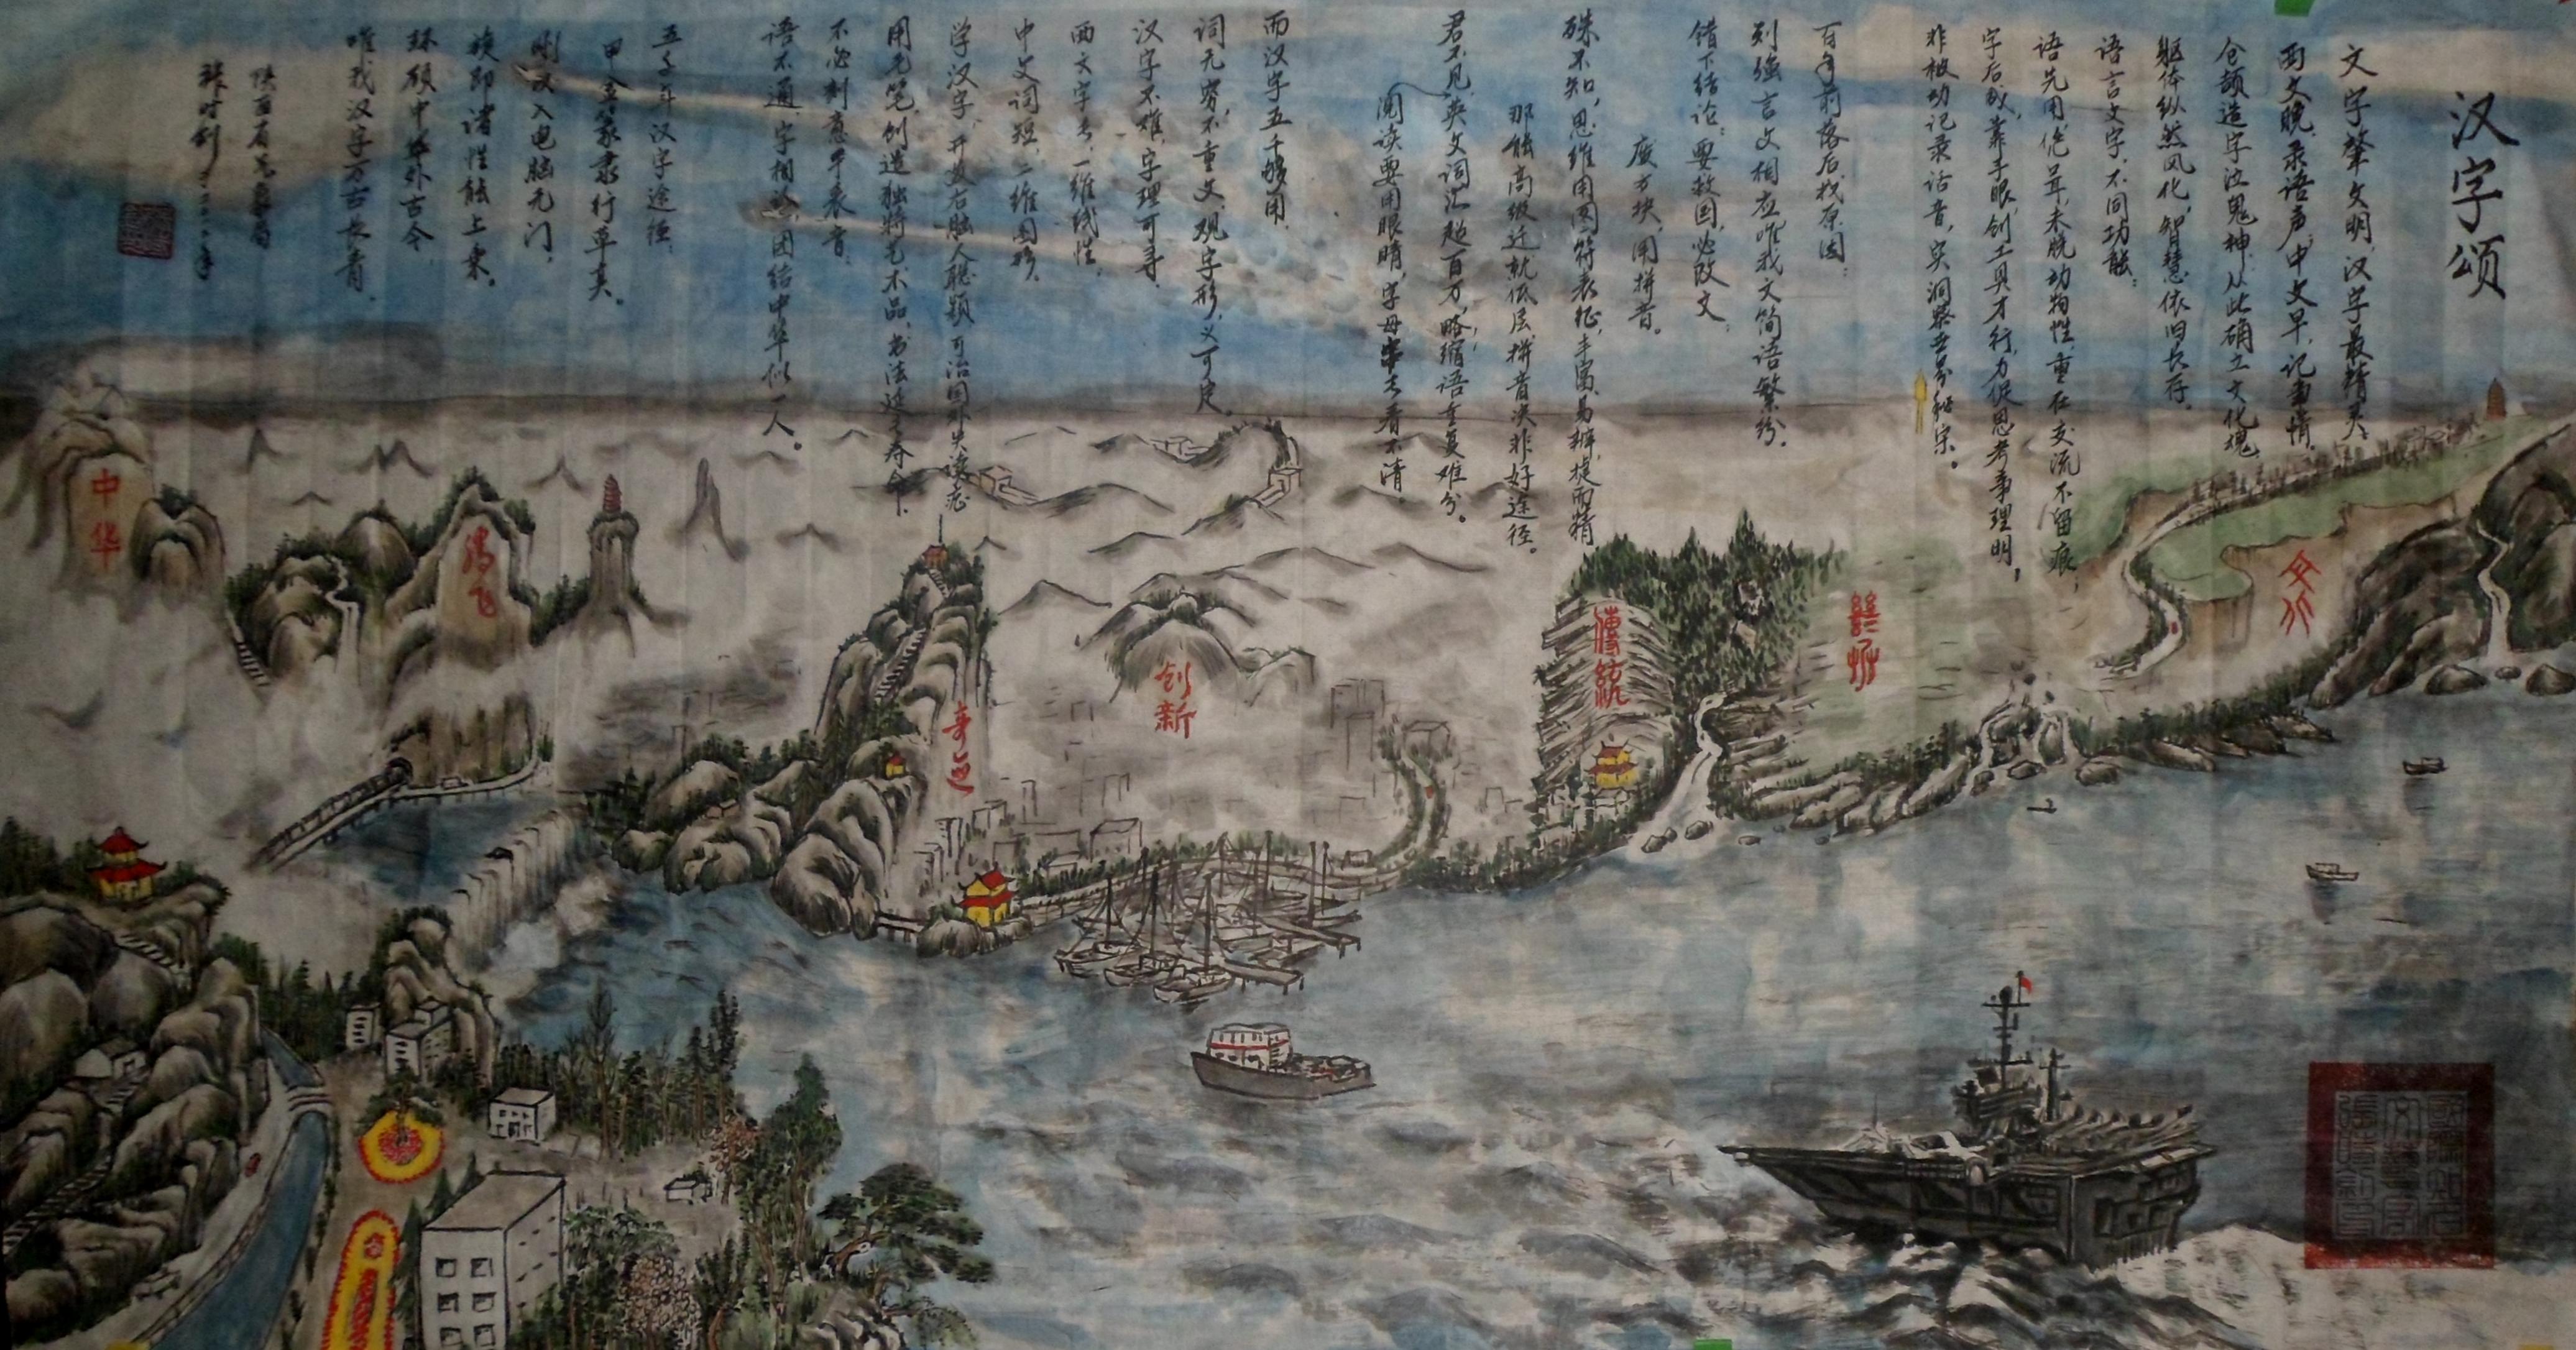 汉字颂
文字肇文明，汉字最精灵，
西文晚，录语声，中文早，记事情。
仓颉造字泣鬼神，从此确立文化魂，
躯体纵然风化，智慧依旧长存。
语言文字，不同功能：
语先用作耳，未脱动物性，重在交流不留痕；
字后成，靠手眼，创工具才行，力促思考事理明，
非被动记录话音，实洞察世界秘宗。
百年前落后找原因：
列强言文相应，唯我文简语繁纷，
错下结论：要救国，必改文，
废方块，用拼音。
殊不知，思维用图符表征，丰富、易辨、捷而精
那能高级迁就低层，拼音决非好途径。
君不见，英文词汇超百万，略缩语重复难分。
阅读要用眼睛，字母串去看不清。
而汉字五千够用，
词无穷，不重义，观字形，义可定。
汉字不难，字理可寻，
西文字长，一维线性，
中文词短，二维图形。
学汉字，开发右脑人聪颖，可治国外失读症
用毛笔，创造独特艺术品，书法延之寿命。
不必刻意乎表音，
语不通，字相论，团结中华似一人。
五千年汉字途径：
甲金篆隶行草真。
刚议入电脑无门，
旋即诸性能上乘。
环顾中华外古今，
唯我汉字万古长青。
张时钊
中华
腾飞
奇迹
创新
傳統
文化